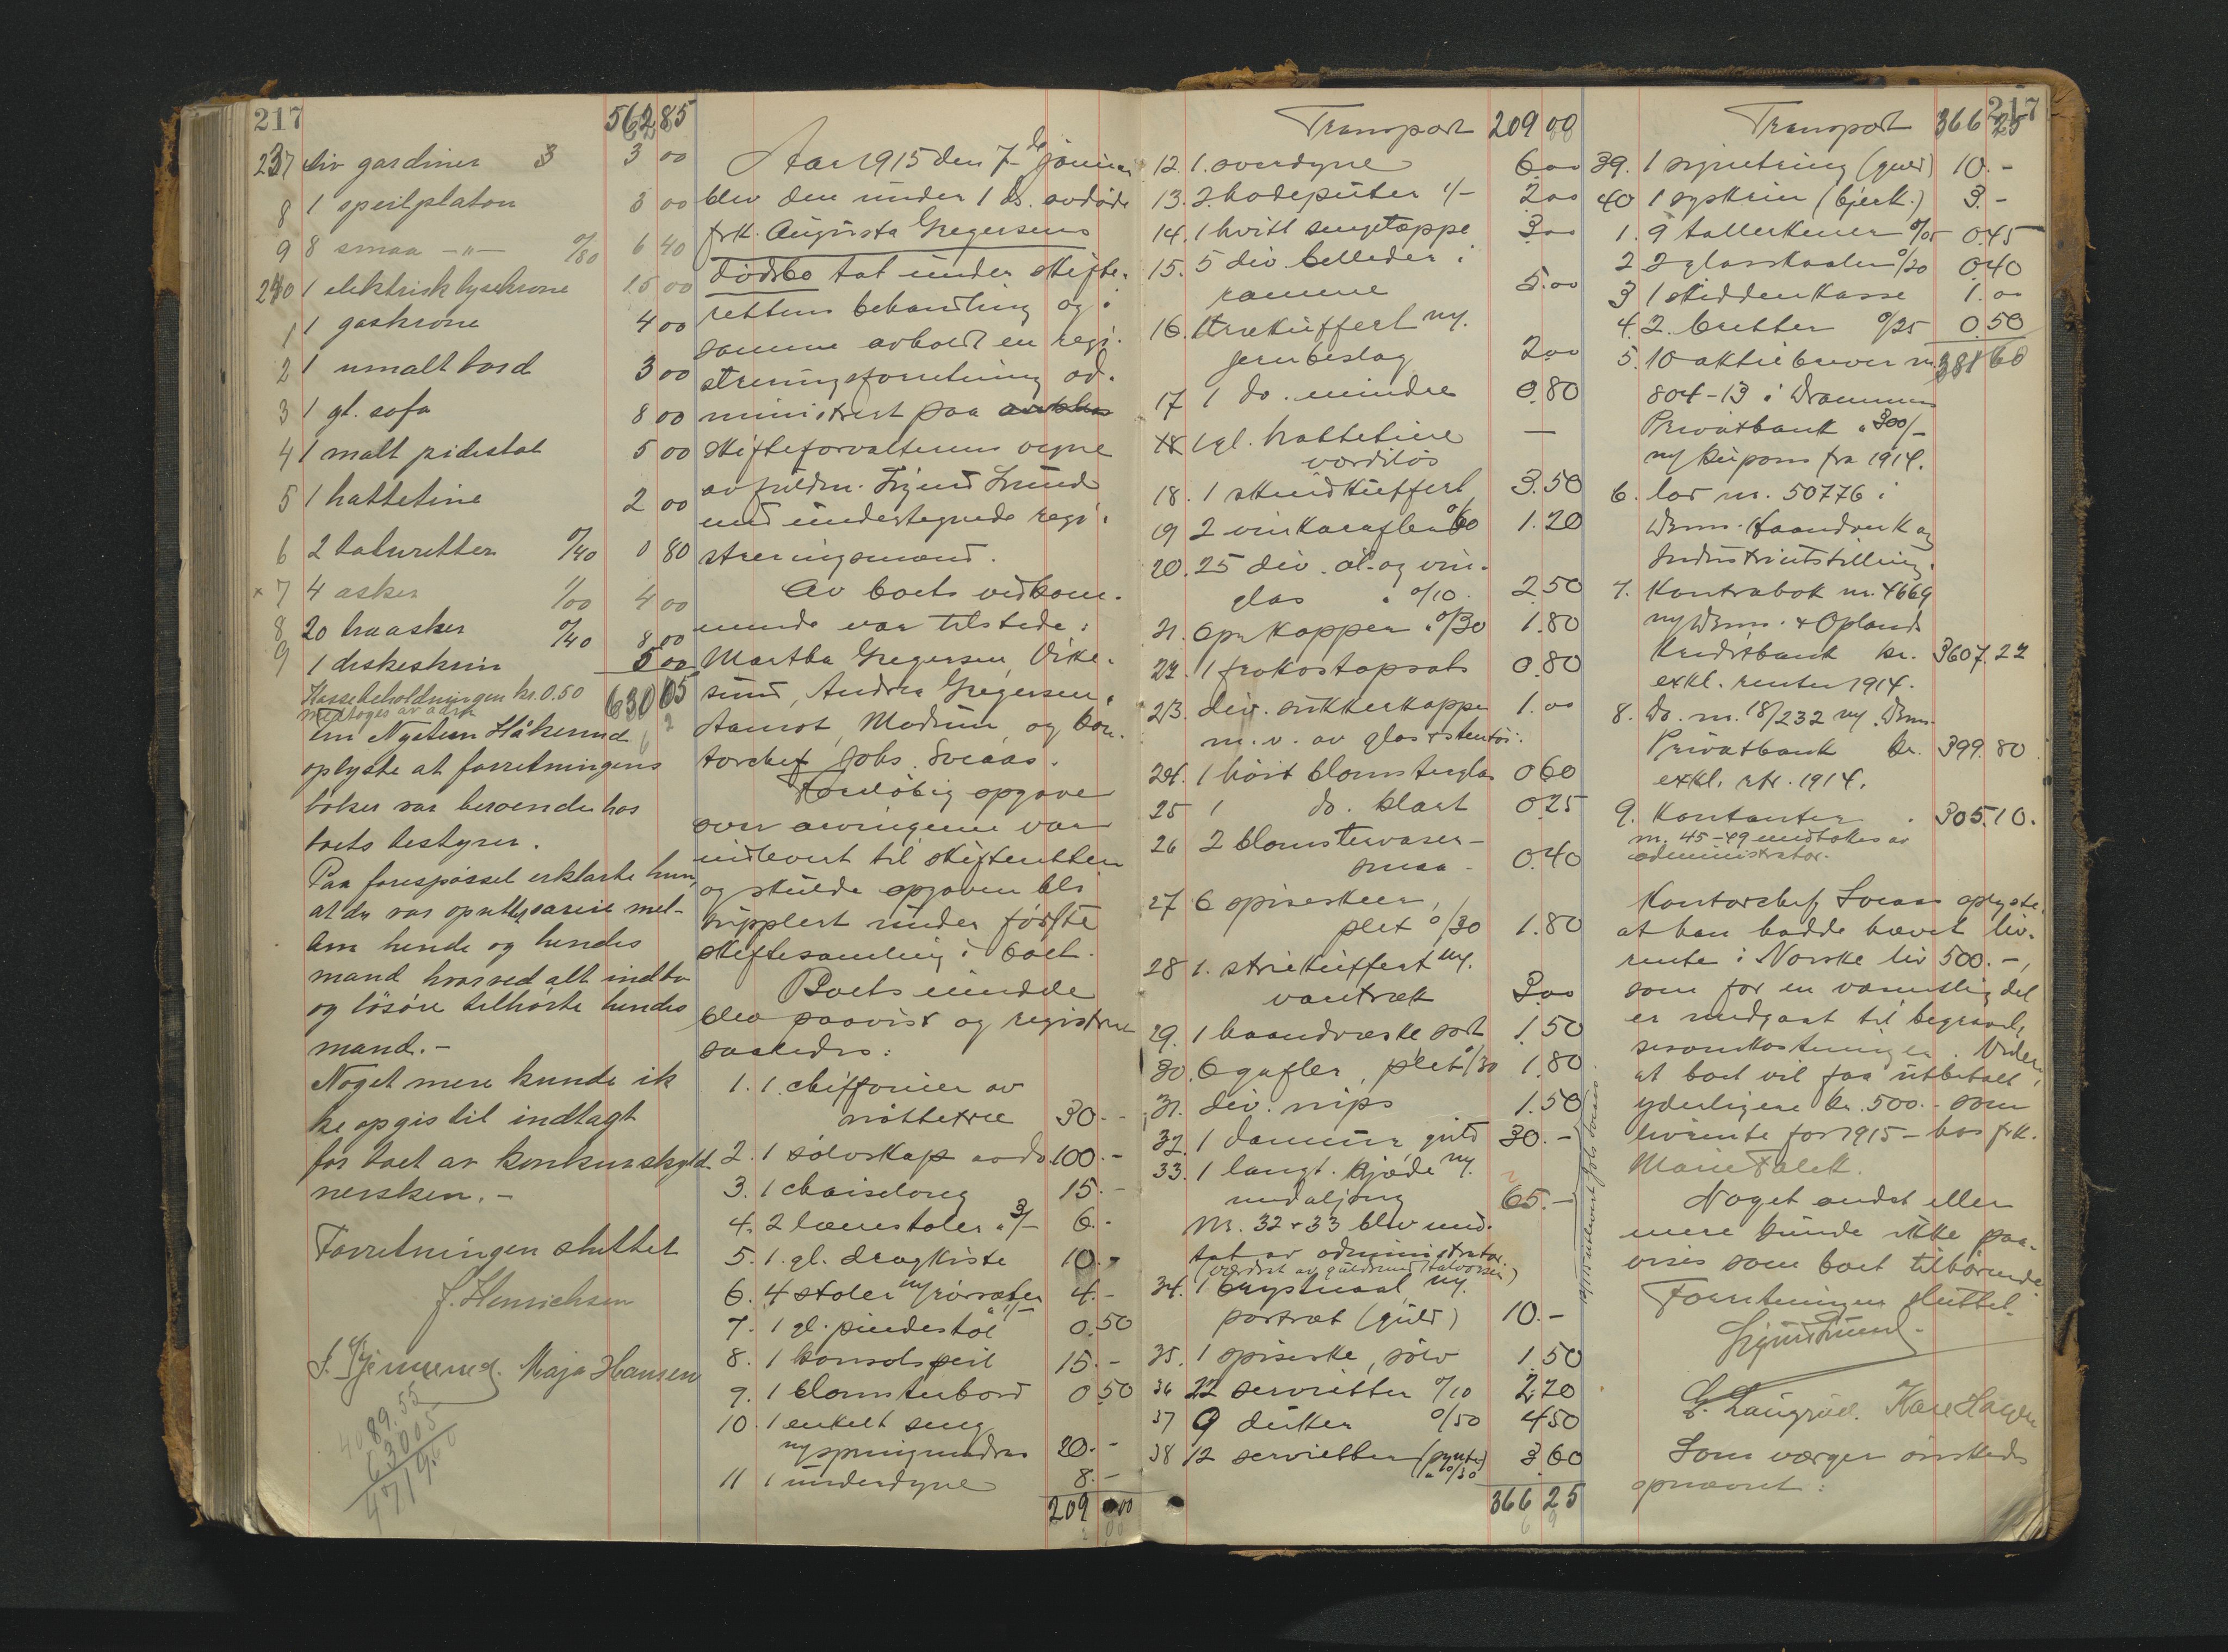 217
562 85
237 div gardiner 3 3 00
8 1 speilplaton 3 00
9 8 smaa -"- 0/80 6 40
240 1 elektrisk lysekrone 15 00
1 1 gaskrone 4 00
2 1 umalt bord 3 00
3 1 gl. sofa 8 00
4 1 malt pidestal 5 00
5 1 hattetine 2 00
6 2 taburetter 0/40 0 80
x 7 4 asker 1/00 4 00
8 20 traasker 0/40 8 00
9 1 diskeskrin 5 00
Kassebeholdningen kr. 0.50 630 05
medtoges av adm
Fru Nysteen Håkerud
oplyste at forretningens
bøker var beroende hos
boets bestyrer.
Paa forespørsel erklærte hun,
at der var oprettet særeie mel-
lem hende og hendes
mand hvorved alt indbo
og løsøre tilhørte hendes
mand.-
Noget mere kunde ik
ke opgis til indtagt
for boet av konkursskyld
nersken.-
Forretningen sluttet
J. Henrichsen
Maja Hansen
4089.55
630 05
4719.60
Aar 1915 den 7de januar
blev den under 1 ds. avdøde
frk. Augusta Gregersens
dødsbo tat under skifte-
rettens behandling og i
samme avholdt en regi-
streringsforretning ad-
ministrert paa
skifteforvalterens vegne
av fuldm. Sigurd Lund
med undertegnede regi-
streringsmænd.
Av boets vedkom-
mende var tilstede:
Martha Gregersen, Vike-
sund, Andrea Gregersen,
Aamot, Modum, og kon-
torchef Johs. Sveaas.
Foreløbig opgave
over arvingerne var
indlevert til skifteretten
og skulde opgaven bli
supplert under første
skiftesamling i boet.
Boets midde
blev paavist og registrert
saaledes:
1. 1 chiffonier av
nøttetræ 30.-
2. 1 sølvskap av do 100.-
3. 1 chaiselong 15.-
4. 2 lænestoler a 3/- 6.-
5. 1 gl. dragkiste 10.-
6. 4 stoler m/ rørsæter 4.-
7. 1 gl. pindestol 0.50
8. 1 konsolspeil 15.-
9. 1 blomsterbord 0 50
10. 1 enkelt seng
m/ springmadras 20.-
11 1 underdyne 8.-
209 00
Transport 209 00
12. 1. overdyne 6 00
13. 2 hodeputer 1/- 2 00
14. 1 hvitt sengetæppe 3 00
15. 5 div. billeder i
ramme 5.00
16. 1 trækuffert m/.
jernbeslag 2 00
17 1 do. mindre 0.80
18 1 gl. hattetine
værdiløs —
18. 1 skindkuffert 3.50
19 2 vinkarafler 0/60 1.20
20. 25 div. øl- og vin-
glas a 0/10 2.50
21. 6 pr kopper a 0/30 1.80
22. 1 frokostopsats 0.80
23. div. sukkerkopper 1.00
m. v. av glas & stentøi.
24. 1 høit blomsterglas 0 60
25 1 do. klart 0 25
26 2 blomstervaser-
smaa - 0.40
27 6 spiseskeer,
plet 0/30 1.80
28 1. strikuffert m/.
vartræk 3 00
29. 1 haandvæske sort 1.50
30. 6 gafler, plet 0/30 1.80
31. div. nips 1.50
32. 1 dameur, guld 30.-
33. 1 langt. kjæde m/.
medaljong 65.-
Nr. 32 & 33 blev med-
tat av administrator
(værdsat av guldsmed Halvorsen)
34. 1 brystnaal m/.
portræt (guld) 10.-
35. 1 spiseske, sølv 1 50
36 22 servietter 0/10 2.20
37 9 duker 0/50 4 50
38 12 servietter (pynte)
a 0/30 3 60
366 25
217
Transport 366 25
39. 1 signetring (guld) 10.-
40 1 syskrin (bjerk.) 3.-
1. 9 tallerkener 0/05 0.45
2 2 glasskaaler 0/20 0.40
3 1 skiddenkasse 1.00
4. 2. bretter 0/25 0.50
381 60
5. 10 aktiebrever nr.
804-13 i Drammens
Privatbank a 300/-
m/ kupons fra 1914.
6. lod nr. 50776 i
Drms. Haandverk og
Industriutstilling.
7. Kontrabok nr. 4669
m/ Drms. & Oplands
Kreditbank kr. 3607.22
exkl. renter 1914.
8. Do. nr. 18/232 m/. Drms.
Privatbank kr. 399.80
exkl. rtr. 1914.
9. Kontanter . 305.10.
nr. 45-49 medtokes av
administrator.
Kontorchef Sveaas oplyste,
at han hadde hævet liv-
rente i Norske liv 500.-,
som for en væsentlig del
er medgaat til begravel-
sesomkostninger. Videre,
at boet vil faa utbetalt
yderligere kr. 500.- som
livrente for 1915 - hos frk.
Marie Falck.
Noget andet eller
mere kunde ikke paa-
vises som boet tilhørende
Forretningen sluttet.
Sigurd Lund.
Som værger ønskedes
opnævnt: